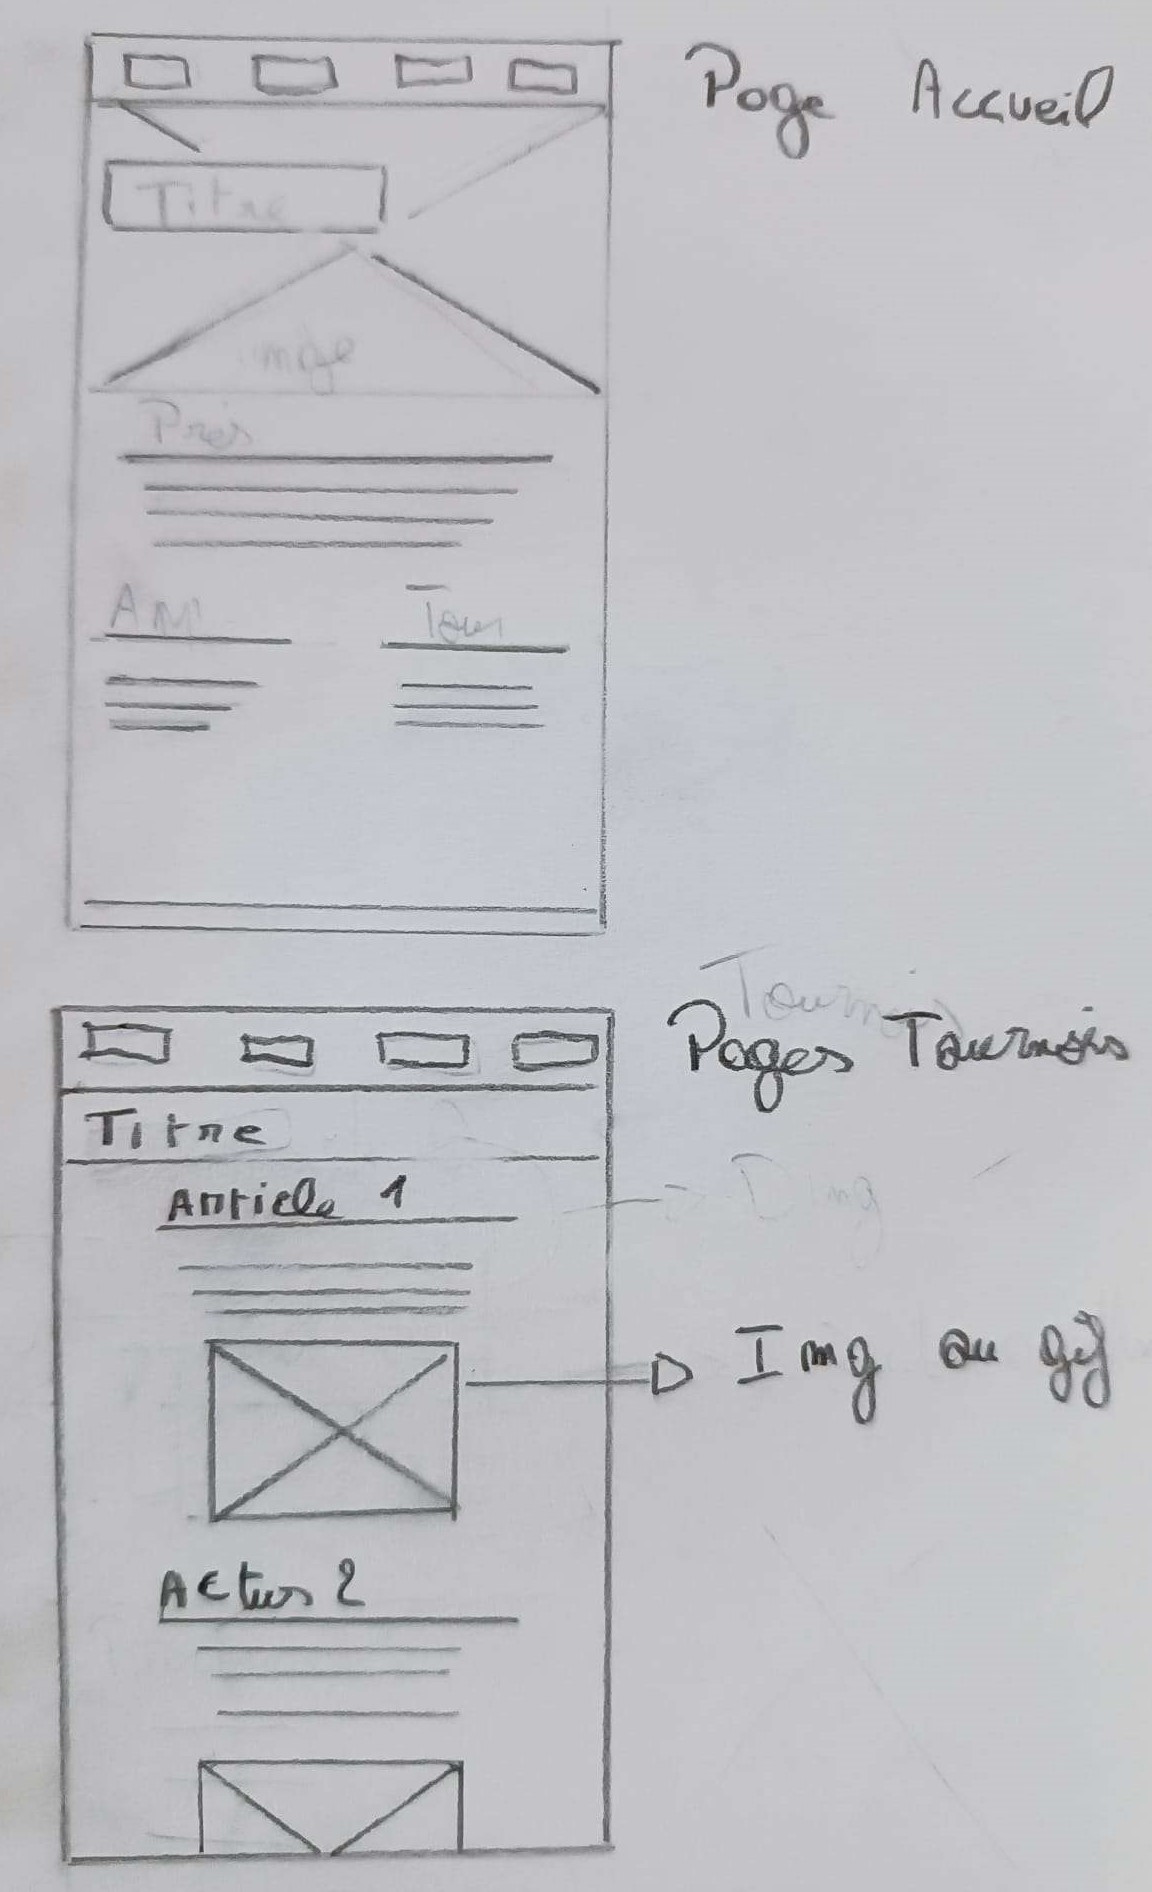 Page Accueil
Titre
image
Prés
Tour
Tourn
Pages Tournois
Titre
Article 1
Img
Img ou gif
Actus 2